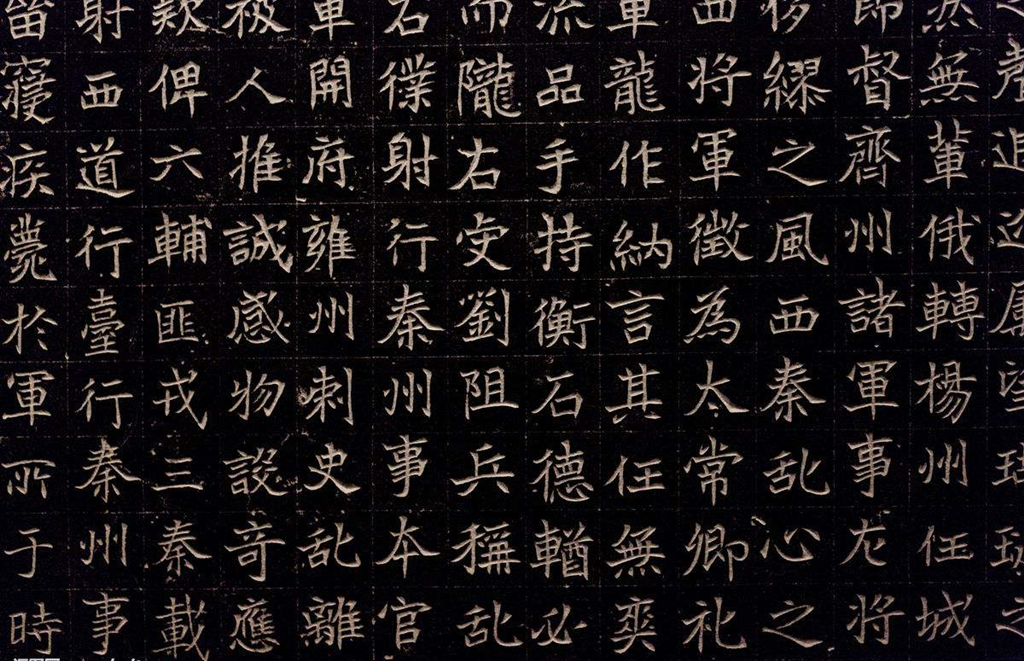 聲追迩屬望珪
然無輩俄轉楊州任城
即督齊州諸軍事尤將
繆之風西秦乱心之
西將軍徵為太常卿礼
車龍作納言其任無爽
流品手持衡石德輶必
而隴右劉阻兵稱乱
右僕射行秦州事本官
軍開府雍州刺史乱離
被人推誠感物設奇應
欵俾六輔匪戎三秦載
射西道行臺行秦州事
留寢疾薨於軍所于時